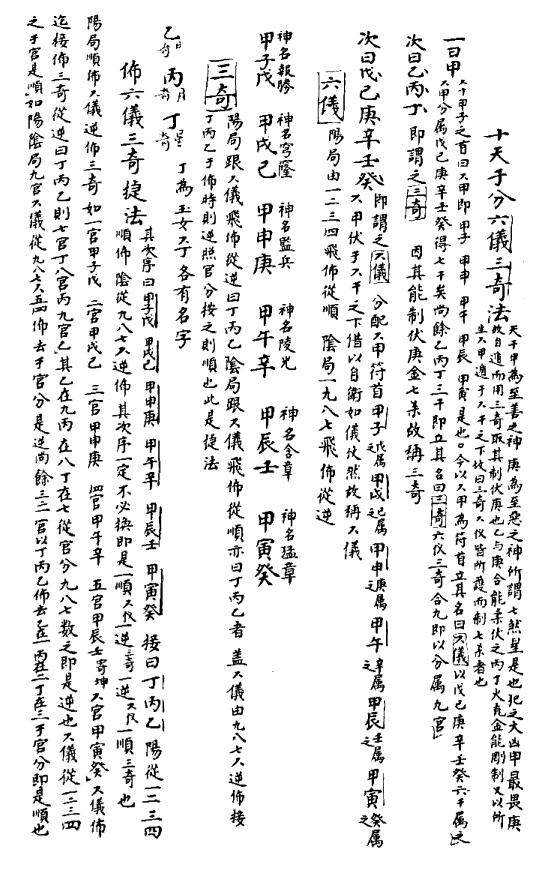 十天干分六儀三奇法
天干甲為至善之神庚為至惡之神所謂七煞星是也犯之大凶甲最畏庚
故自遁而用三奇取其制伏庚也乙与庚合能柔伏之丙丁火克金能剛制又以所
生六甲遁于六干之下故曰三奇六仪皆所護而制七杀者也
一曰甲
六十甲子之首曰六甲即甲子 甲申 甲午 甲辰 甲寅是也。今以六甲為符首立其名曰六儀以戊己庚辛壬癸六干属之
六甲分属戊己庚辛壬癸得七干矣尚餘乙丙丁三干即立其名曰三奇六仪三奇合九即以分属九宮
次曰乙丙丁 即謂之三奇 因其能制伏庚金七杀故稱三奇
次曰戊己庚辛壬癸 即謂之六儀 分配六甲符首 甲子之戊属 甲戌之己属 甲申之庚属 甲午之辛属 甲辰之壬属 甲寅之癸属
六甲伏于六干之下借以自衛如儀仗然故稱六儀
六儀 陽局由一二三四飛佈從順 陰局一九八七飛佈從逆
神名報勝 神名穹窿 神名監兵 神名陵光 神名含章 神名猛章
甲子戊 甲戌己 甲申庚 甲午辛 甲辰壬 甲寅癸
三奇 陽局跟六儀飛佈從逆曰丁丙乙 陰局跟六儀飛佈從順亦曰丁丙乙者 蓋六儀由九八七六逆佈接
丁丙乙于佈時則逆照宮分按之則順也此是捷法
乙日奇 丙月奇 丁星奇 丁為玉女六丁各有名字
佈六儀三奇捷法
其次序曰甲子戊 甲戌己 甲申庚 甲午辛 甲辰壬 甲寅癸 接曰丁丙乙 陽從一二三四
順佈 陰從九八七六逆佈其次序一定不必換即是一順六仪一逆三奇一逆六仪一順三奇也
陽局順佈六儀逆佈三奇 如一宮甲子戊 二宮甲戌己 三宮甲申庚 四宮甲午辛 五宮甲辰壬寄坤 六宮甲寅癸 六儀佈
迄接佈三奇從逆曰丁丙乙則七宮丁八宮丙九宮乙其乙在九丙在八丁在七從宮分九八七數之即是逆也六儀從一二三四
之于宮是順如陽陰局九宮六儀從九八七六五四佈去于宮分是逆尚餘三二一宮以丁丙乙佈去乙在一丙在二丁在三于宮分即是順也